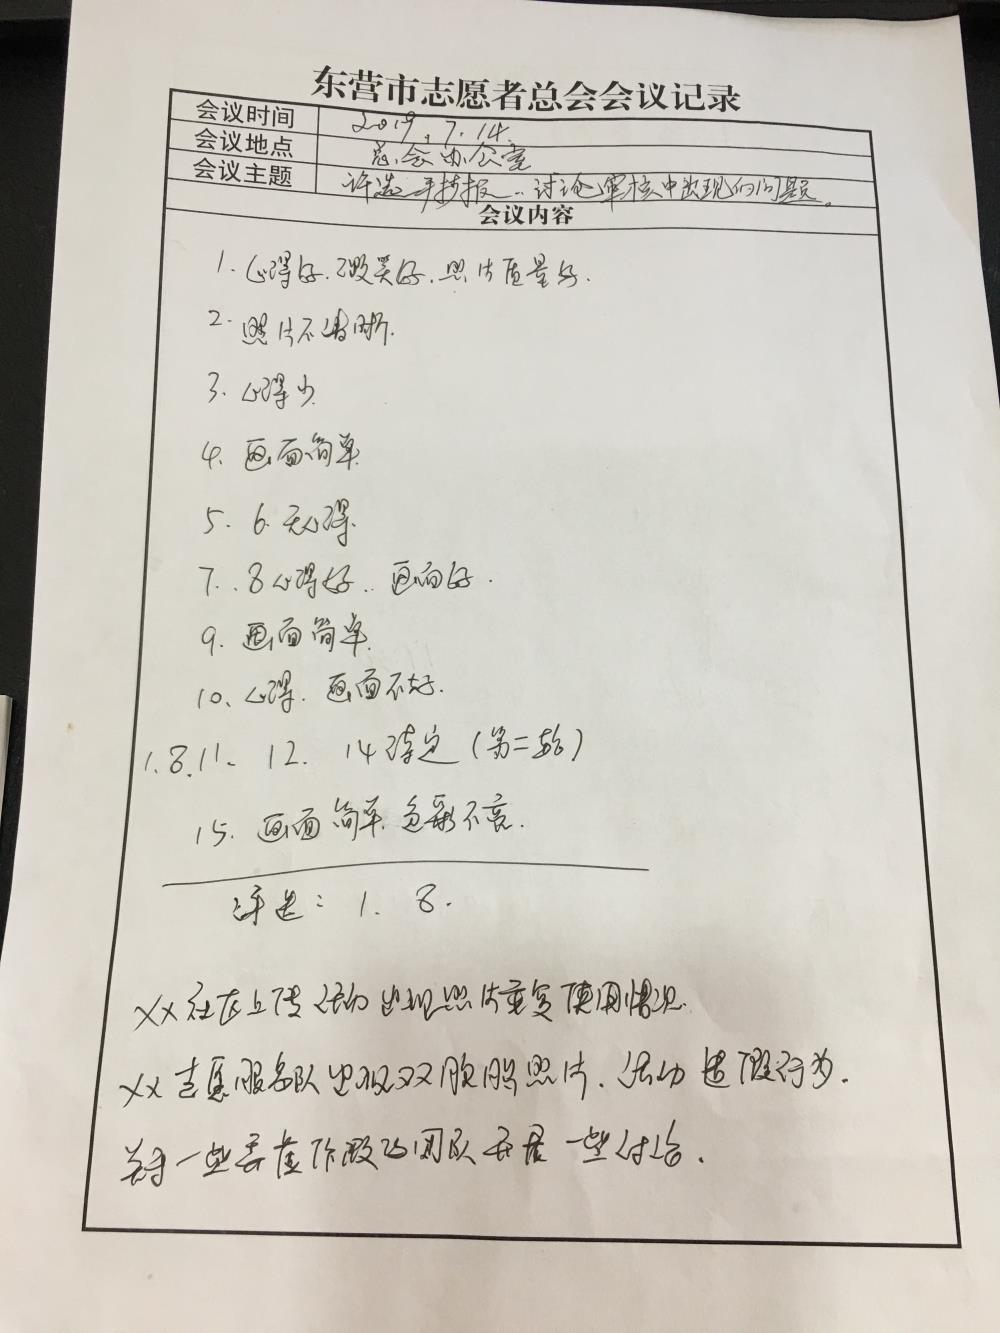 东营市志愿者总会会议记录
会议时间 2019.7.14.
会议地点 总会办公室
会议主题 评选手抄报..讨论审核中出现的问题。
会议内容
1. 心得好.微笑好.照片质量好.
2. 照片不清晰.
3. 心得少
4. 画面简单
5. 6. 无心得.
7..8 心得好.. 画面好.
9. 画面简单.
10、心得.画面不好.
1.8.11. 12. 14 待定(第二轮)
15. 画面简单.色彩不亮.
评选: 1. 8.
XX社区上传活动出现照片重复使用情况.
XX志愿服务队出现双胞胎照片、活动造假行为.
关于一些弄虚作假的团队开展一些讨论.